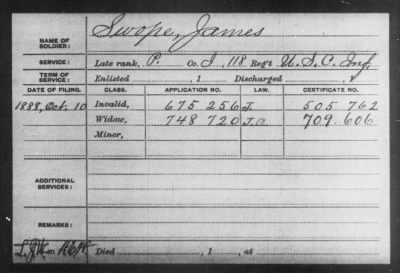 NAME OF SOLDIER: Swope, James
SERVICE: Late rank, P. Co. I, 118 Reg't U.S.C. Inf.
TERM OF SERVICE: Enlisted , 1 Discharged , 1
DATE OF FILING. CLASS. APPLICATION NO. LAW. CERTIFICATE NO.
1888, Oct. 10 Invalid, 675 256 J. 505 762
Widow, 748 720 J.a 709.606
Minor,
ADDITIONAL SERVICES:
REMARKS:
Died , 1 , at